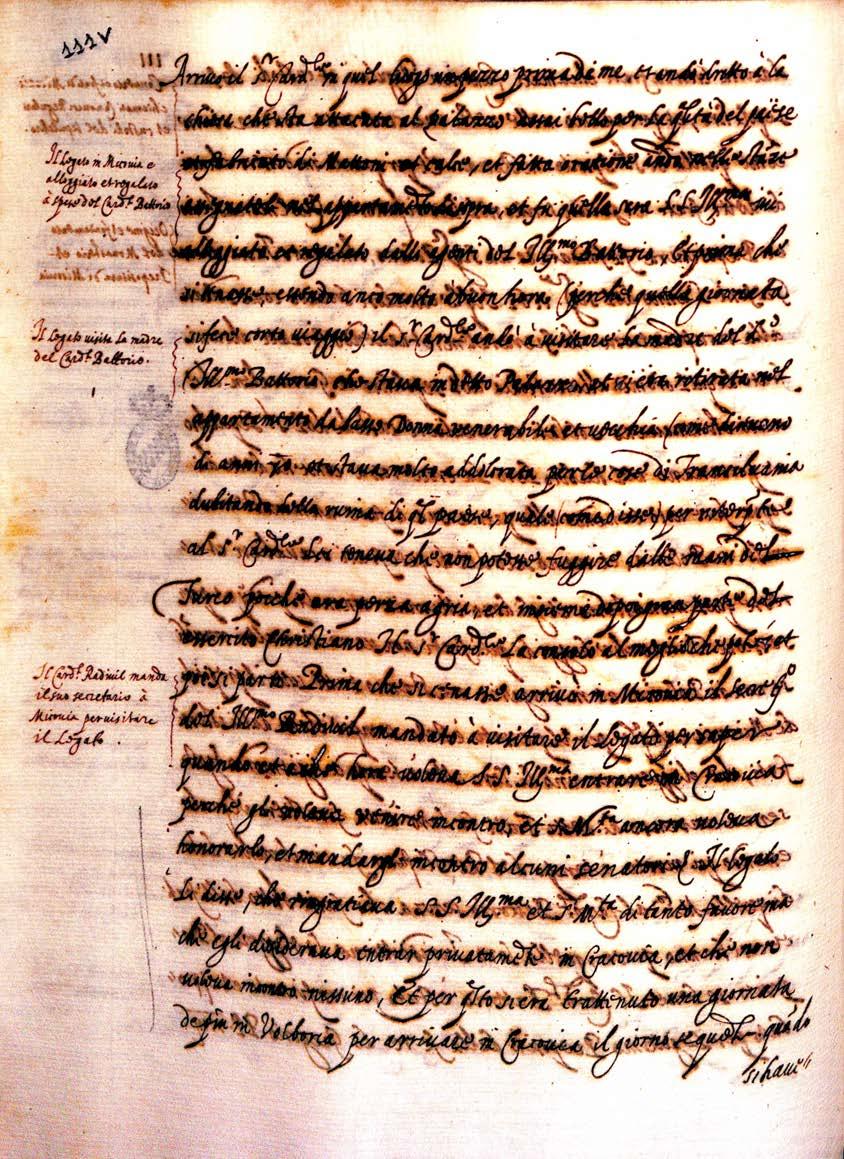 111v
Arrivo il S.r Card.le in quel luogo un pezzo prima di me, et andò dritto à la
chiesa che sta attaccata al palazzo assai bello per la q.lità del paese
et fabricato di Mattoni et calce, et fatta oratione andò nelle stanze
assignateli nel appartamẽto di sopra, et fu quella sera S.S. Ill.ma ivi
alloggiata et regalata dalli agenti del Ill.mo Battorio, Et prima che
si cenasse, essendo anco molto à buon hora (perche quella giornata
si fece corto viaggio) il S.r Card.le andò à visitare la madre del d.o
Ill.mo Battorio che stava in detto Palazzo, et si era retirata nel
appartamento da basso Donna venerabile et vecchia (come dicevano
di anni 70. et stava molto addolorata per le cose di Transilvania
dubitando della ruina di q.l paese, quale (come disse)
al S.r Card.le Lei teneva che non potesse fuggire dalle mani del
Turco poiche era persa Agria, et insieme dopoi gran parte del
essercito Christiano Il S.r Card.le la consolò al meglio che potè, et
poi si partò. Prima che si cenasse arrivò in Micovia il secret.o
del Ill.mo Radivil mandato à visitare il Legato per saper
quando et à che hora voleva S.S. Ill.ma entrare in Cracovia
perché gli voleva venire incontro, et S. M.tà ancora voleva
honorarlo, et mandargli incontro alcuni senatori. Il Legato
li disse, che ringratiava S.S. Ill.ma et S. M.tà di tanto favore ma
che egli desiderava entrar privatamẽte in Cracovia, et che non
voleva incontro nissuno, Et per q.sto si era trattenuto una giornata
de più in Volboria per arrivare in Cracovia il giorno sequẽte quãdo
si have
Il Legato in Micovia e
alloggiato et regalato
à spese del Card.l Battorio
Il Legato visita la madre
del Card.l Battorio.
Il Card.l Radivil manda
il suo secretario à
Micovia per visitare
il Legato.